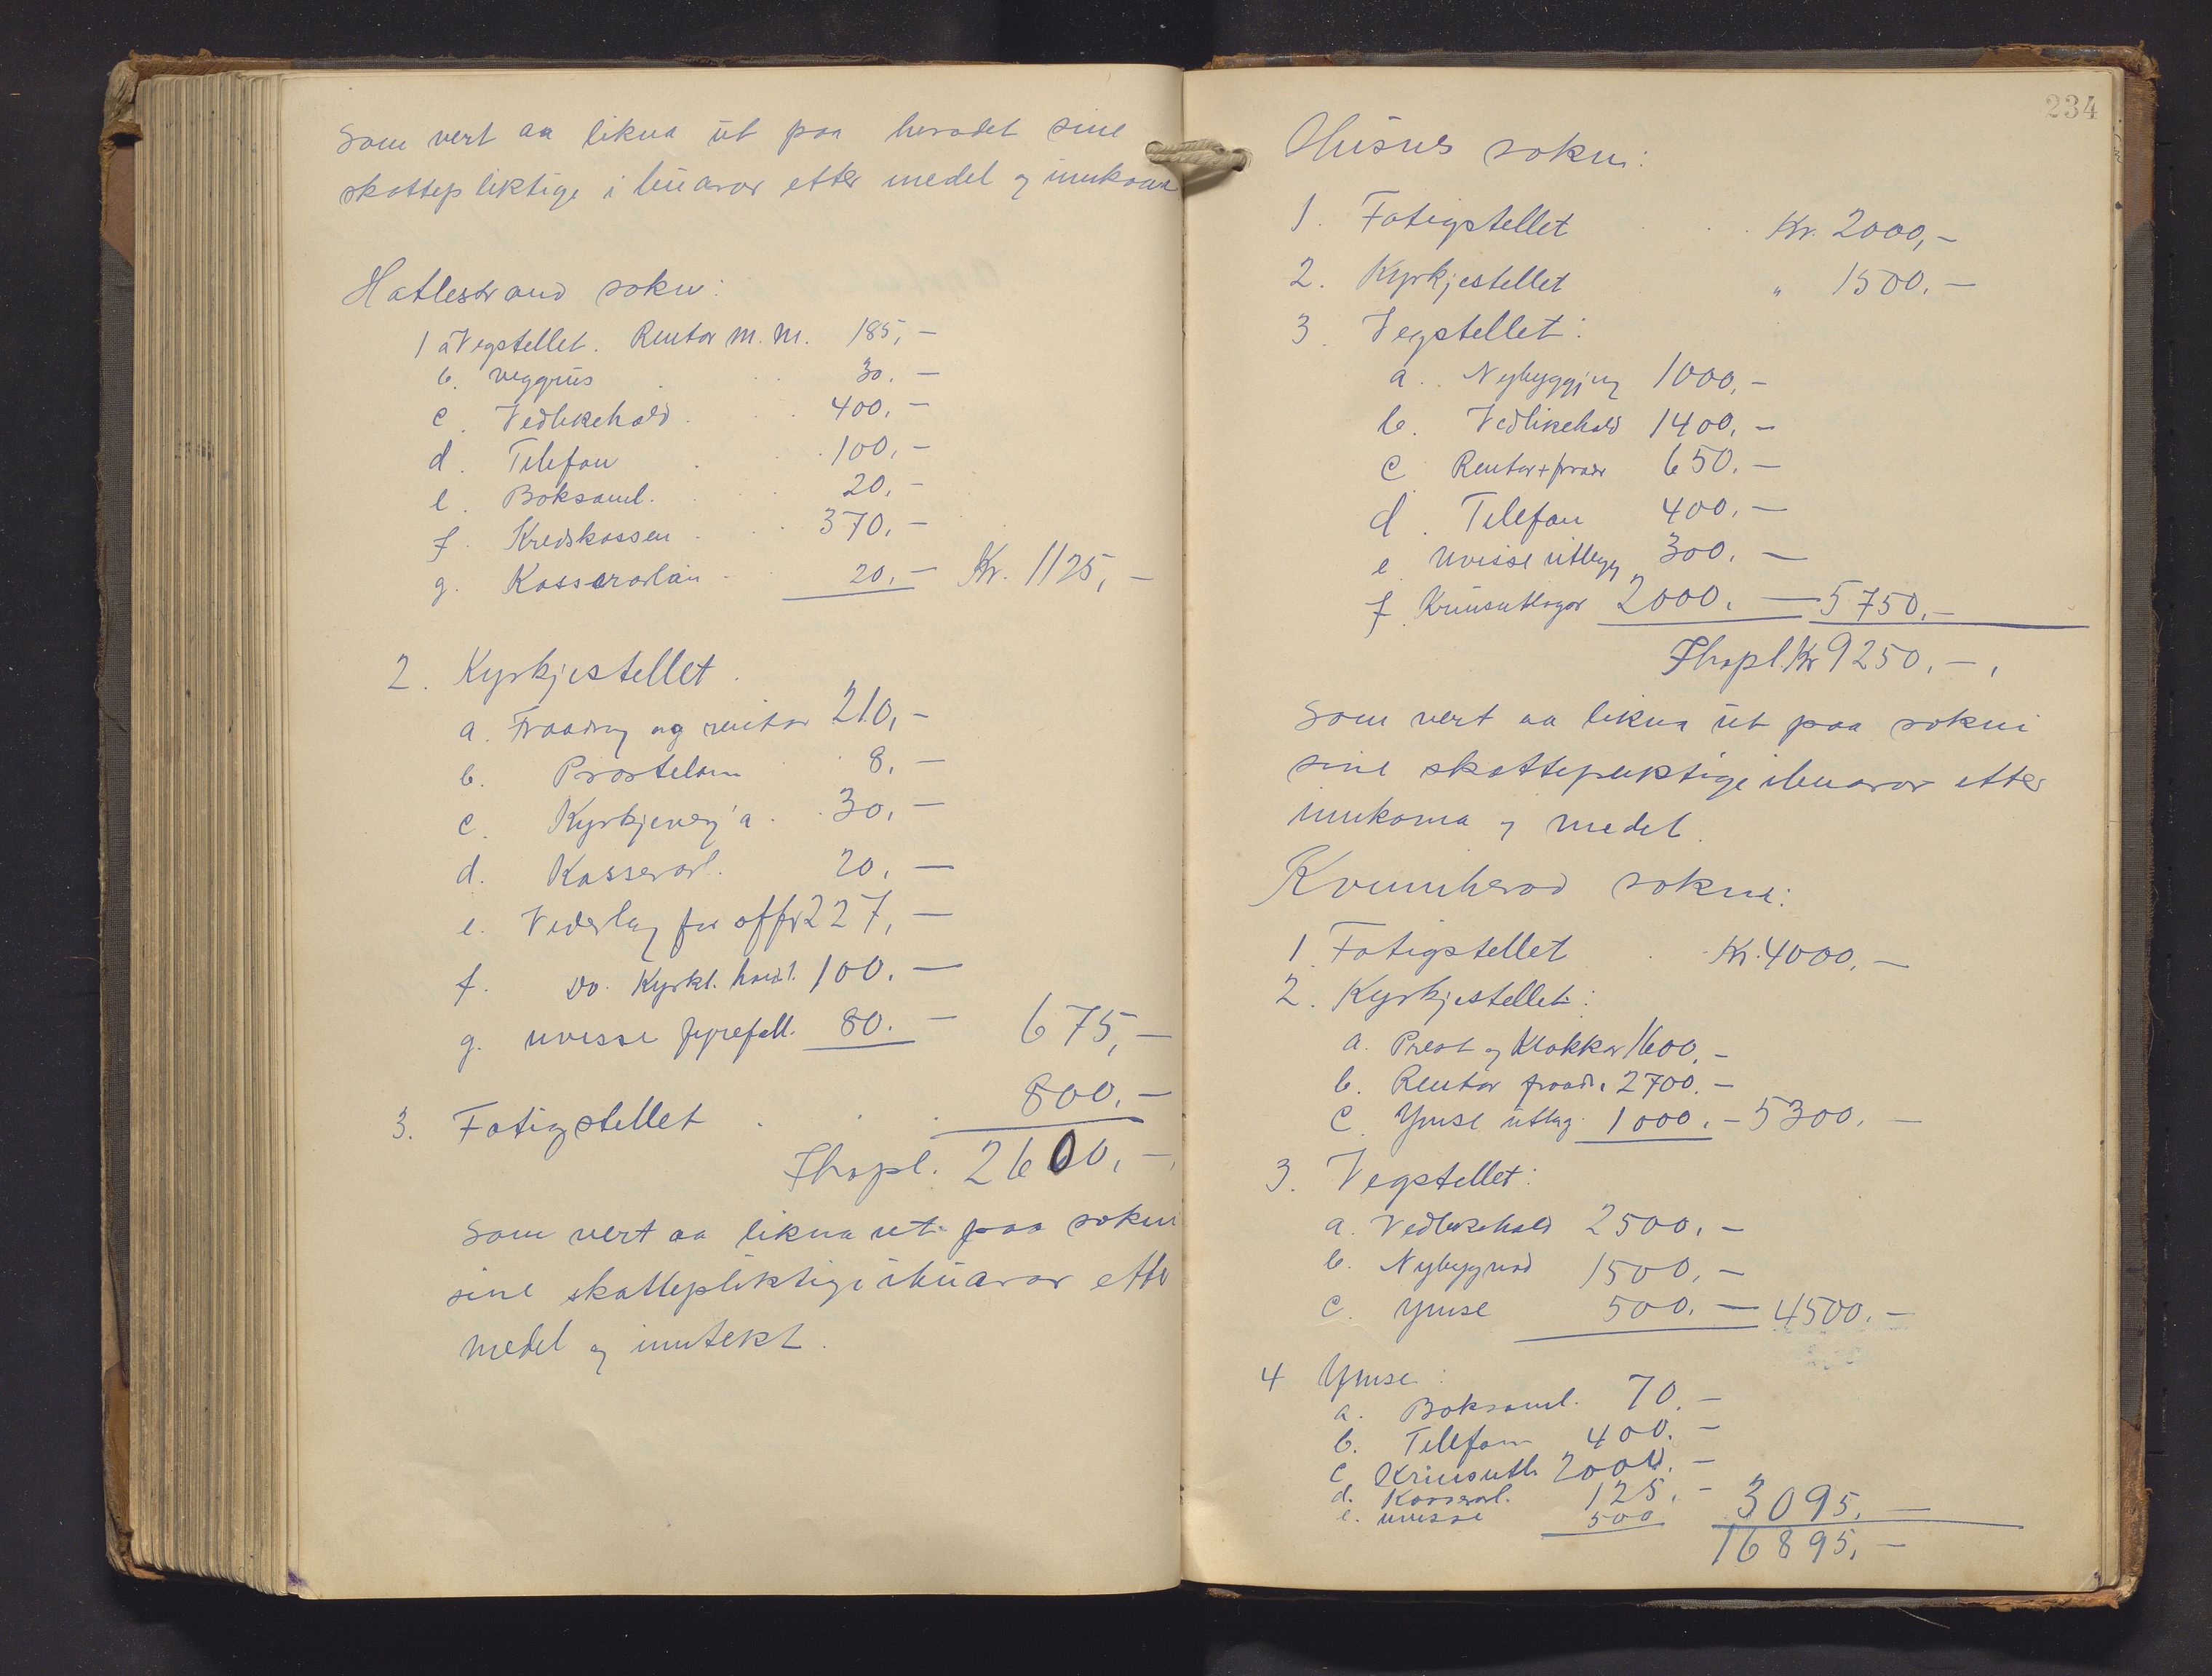 Som vert aa likna ut paa heradet sine
skattepliktige i buarar etter medel og innkoma
Hatlestrand sokn:
1 a Vegstellet. Rentor m.m. 185,-
b. veggrus 30.-
c. Vedlikehald 400,-
d. Telefon 100,-
e. Boksaml. 20,-
f. Kredskassen 370.-
g. Kassararløn 20.- Kr. 1125,-
2. Kyrkjestellet
a. Fraadrag og rentor 210,-
b. Prosteløn 8.-
c. Kyrkjeverja 30,-
d. Kasserarl. 20.-
e. Vederlag for offr 227,-
f. Do. Kyrkl. handl. 100.-
g. uvisse fyrefall. 80.- 675,-
3. Fatigstellet 800.-
Ihopl. 2600,-
Som vert aa likna ut paa sokni
sine skattepliktige ibuarar etter
medel og inntekt.
234
Husnes sokn:
1. Fatigstellet Kr. 2000,-
2. Kyrkjestellet " 1500.-
3. Vegstellet:
a. Nybyggjing 1000,-
b. Vedlikehald 1400,-
c Rentor + fradr 650.-
d. Telefon 400,-
e Uvisse utlegg 300.-
f. Krinsutlogor 2000.- 5750,-
Ihopl. Kr 9250.-,
Som vert aa likna ut paa sokni
sine skattepliktige ibuarar etter
innkoma og medel.
Kvinnherad sokn:
1 Fatigstellet Kr. 4000.-
2. Kyrkjestellet:
a. Prest og Klokkar 1600.-
b. Rentor fraadr. 2700.-
c. Ymse utleg. 1000.- 5300.-
3. Vegstellet:
a. Vedlikehald 2500.-
b. Nybygnad 1500,-
c. Ymse 500.- 4500.-
4 Ymse:
a. Boksaml. 70.-
b. Telefon 400.-
c. Krinsutl. 2000.-
d. Kasserarl. 125.-
e. uvisse 500. 3095.-
16895,-